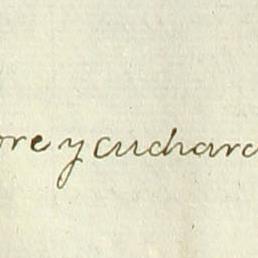 ore y cuchara